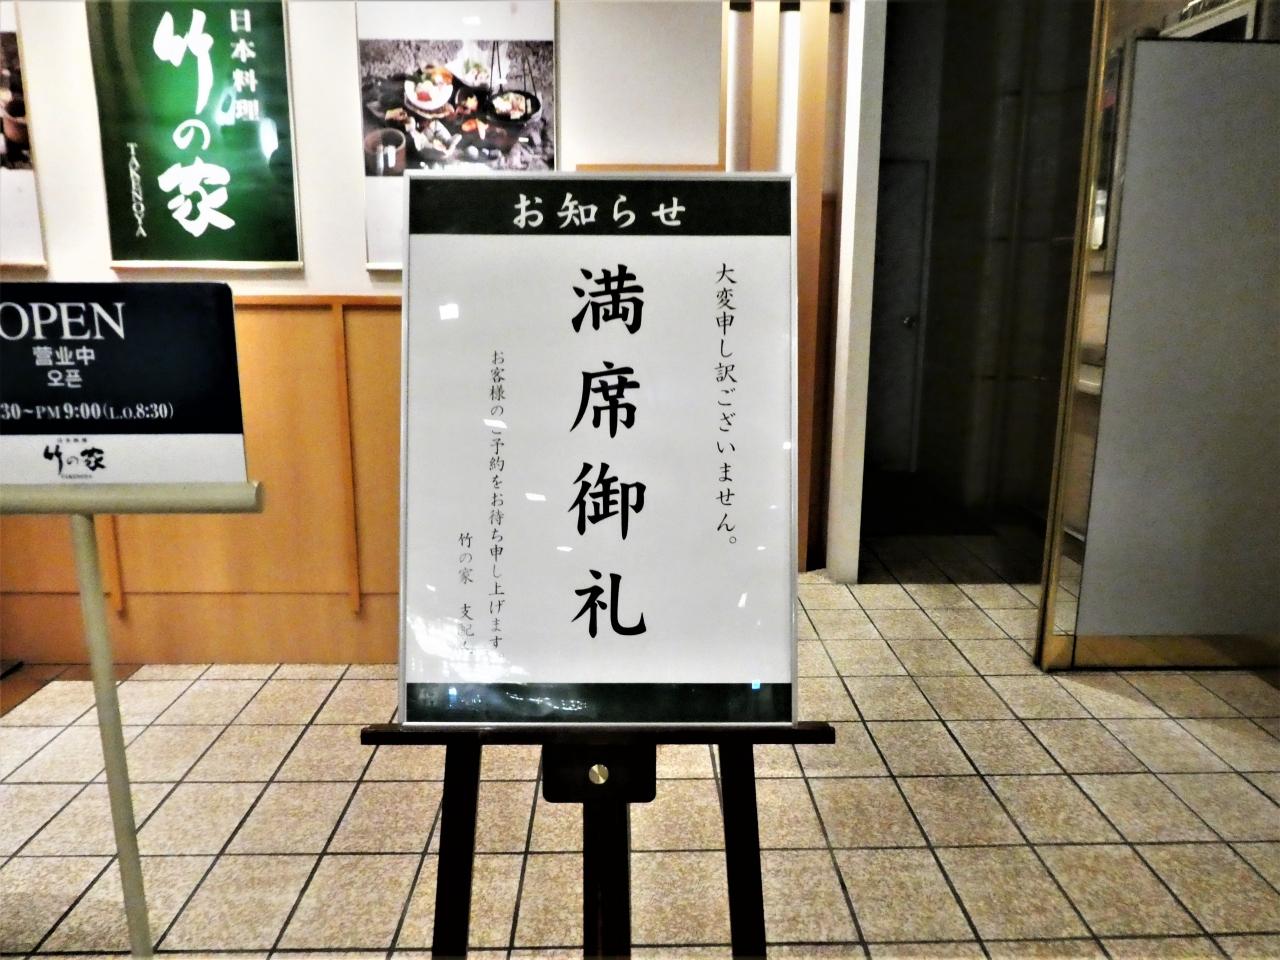 日本料理
竹の家
TAKENOYA
OPEN
营业中
오픈
30~PM 9:00(L.O.8:30)
竹の家
お知らせ
大変申し訳ございません。
満席御礼
お客様のご予約をお待ち申し上げます
竹の家 支配人